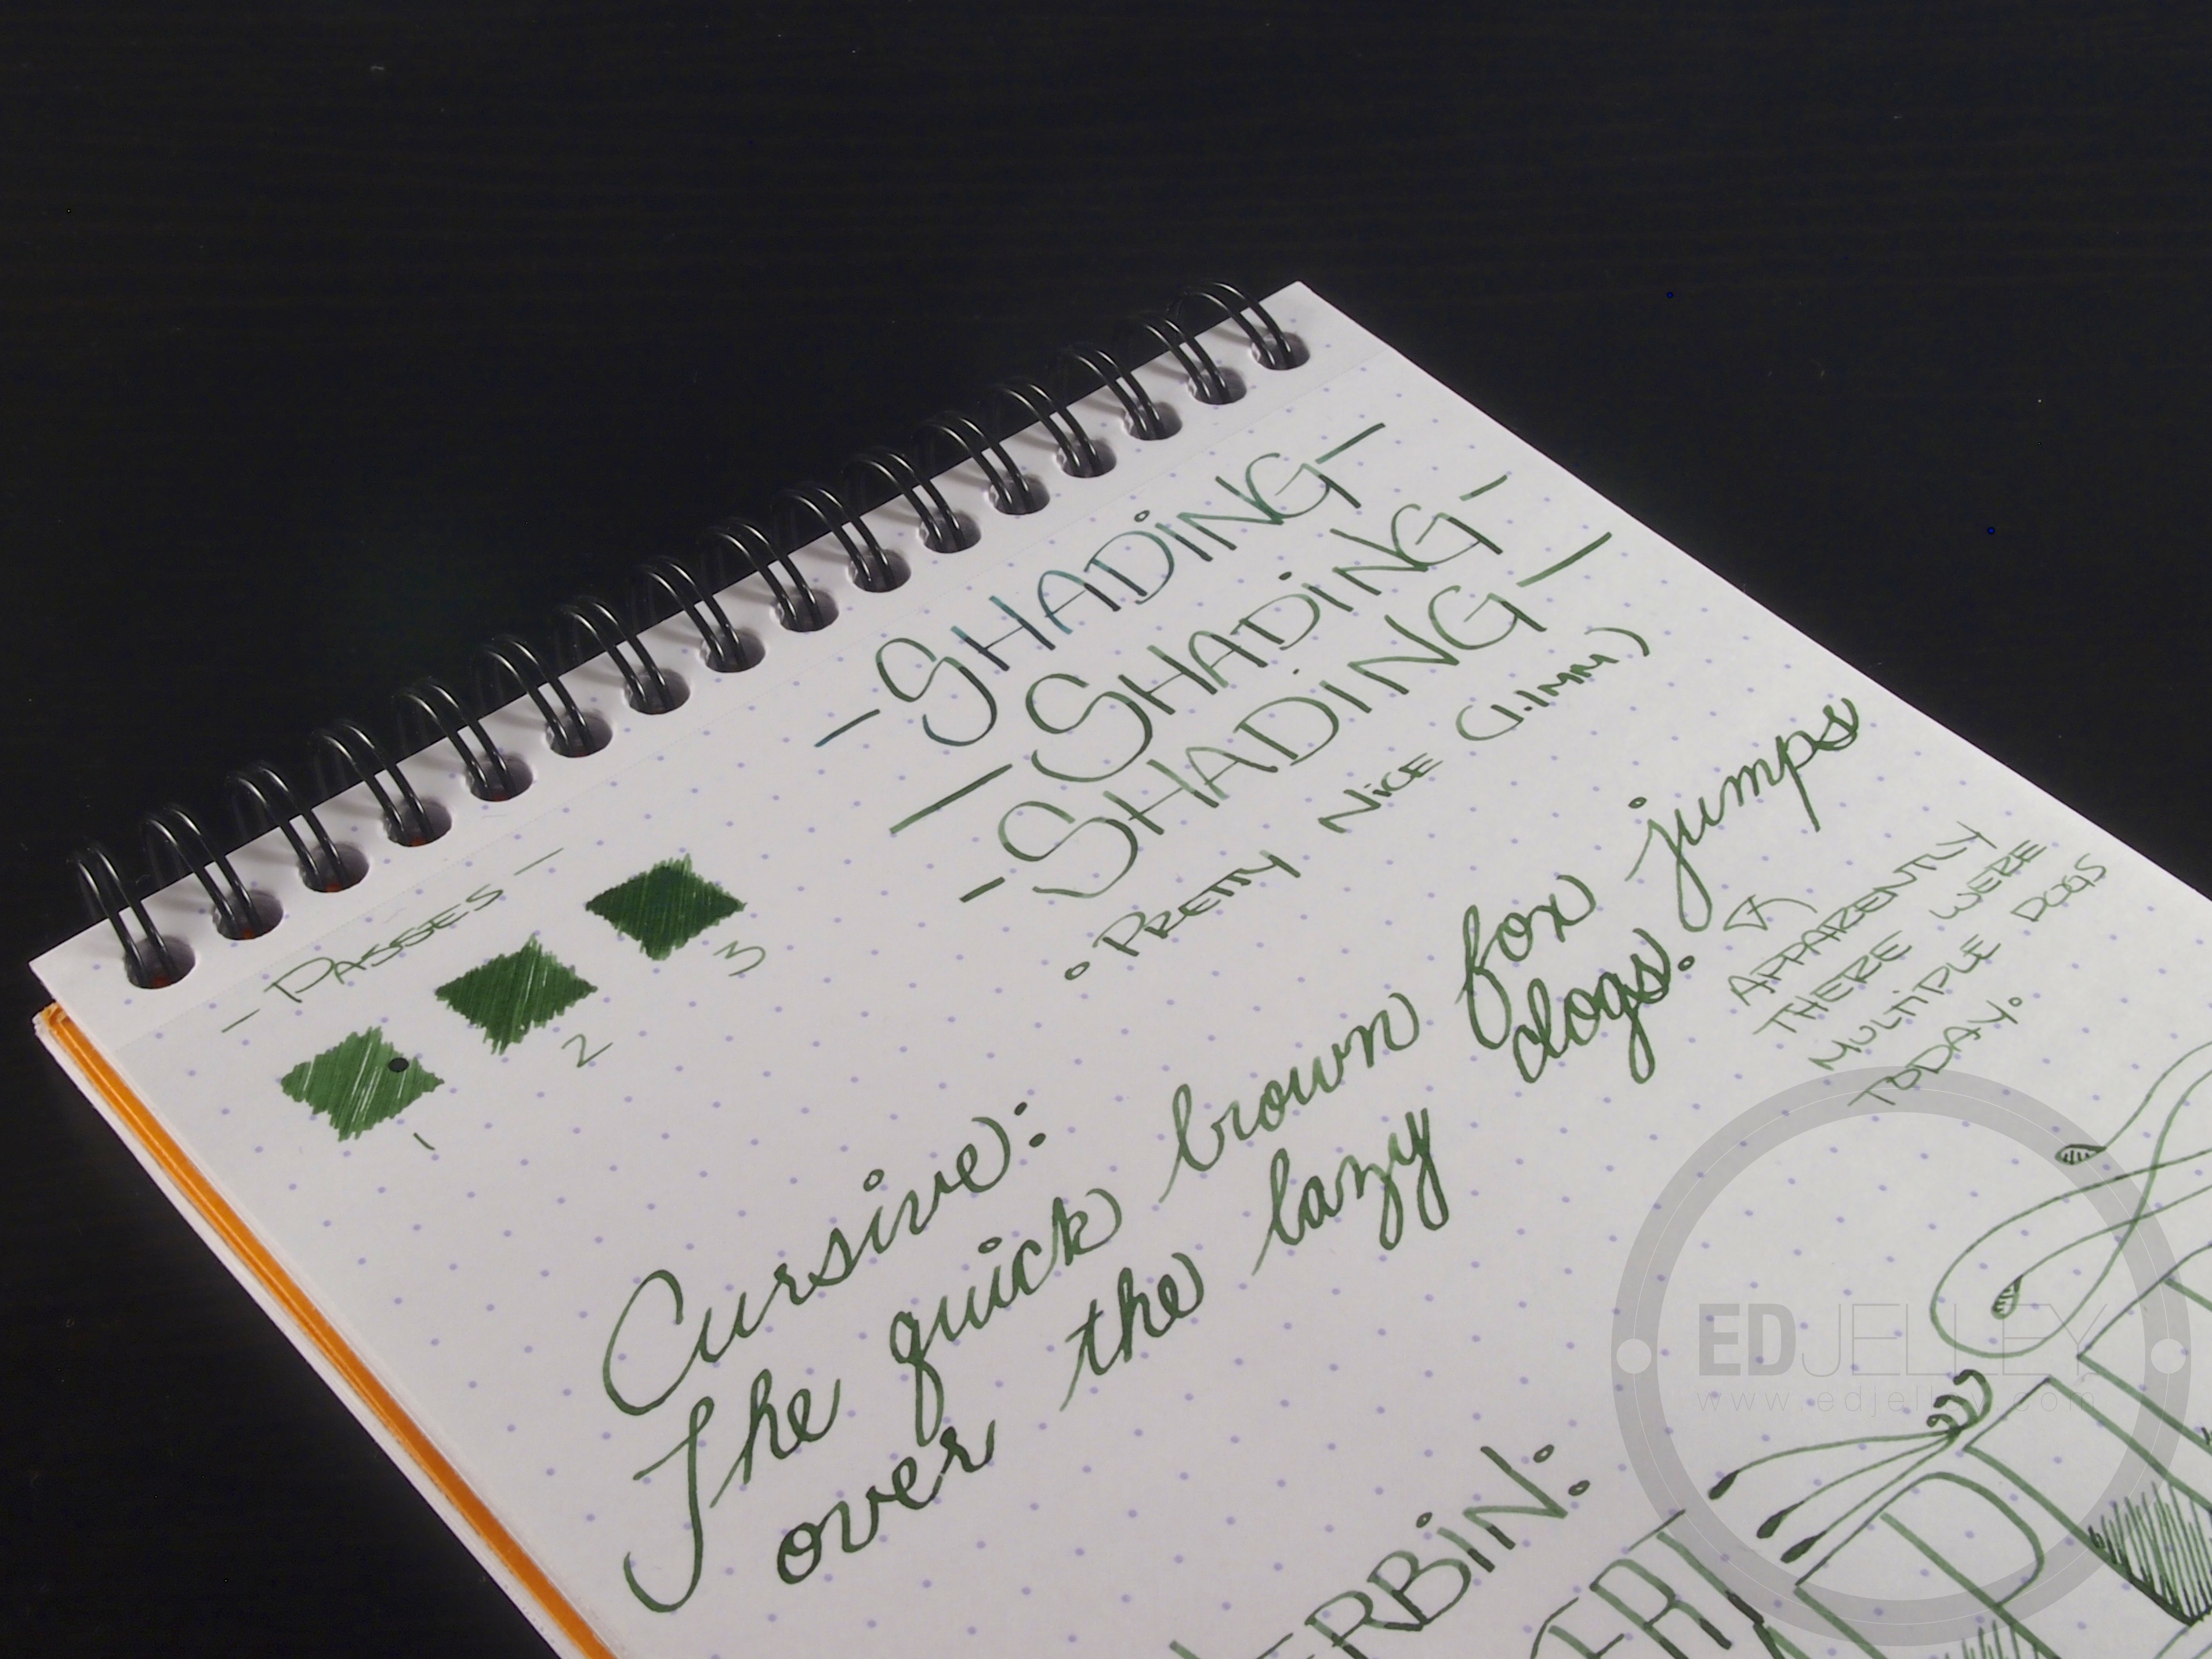 - SHADING -
- SHADING -
- SHADING -
• PRETTY NICE (1.1MM)
- PASSES -
1 2 3
Cursive:
The quick brown fox jumps
over the lazy dogs.
APPARENTLY
THERE WERE
MULTIPLE DOGS
TODAY.
EDJELLEY
www.edjelley.com